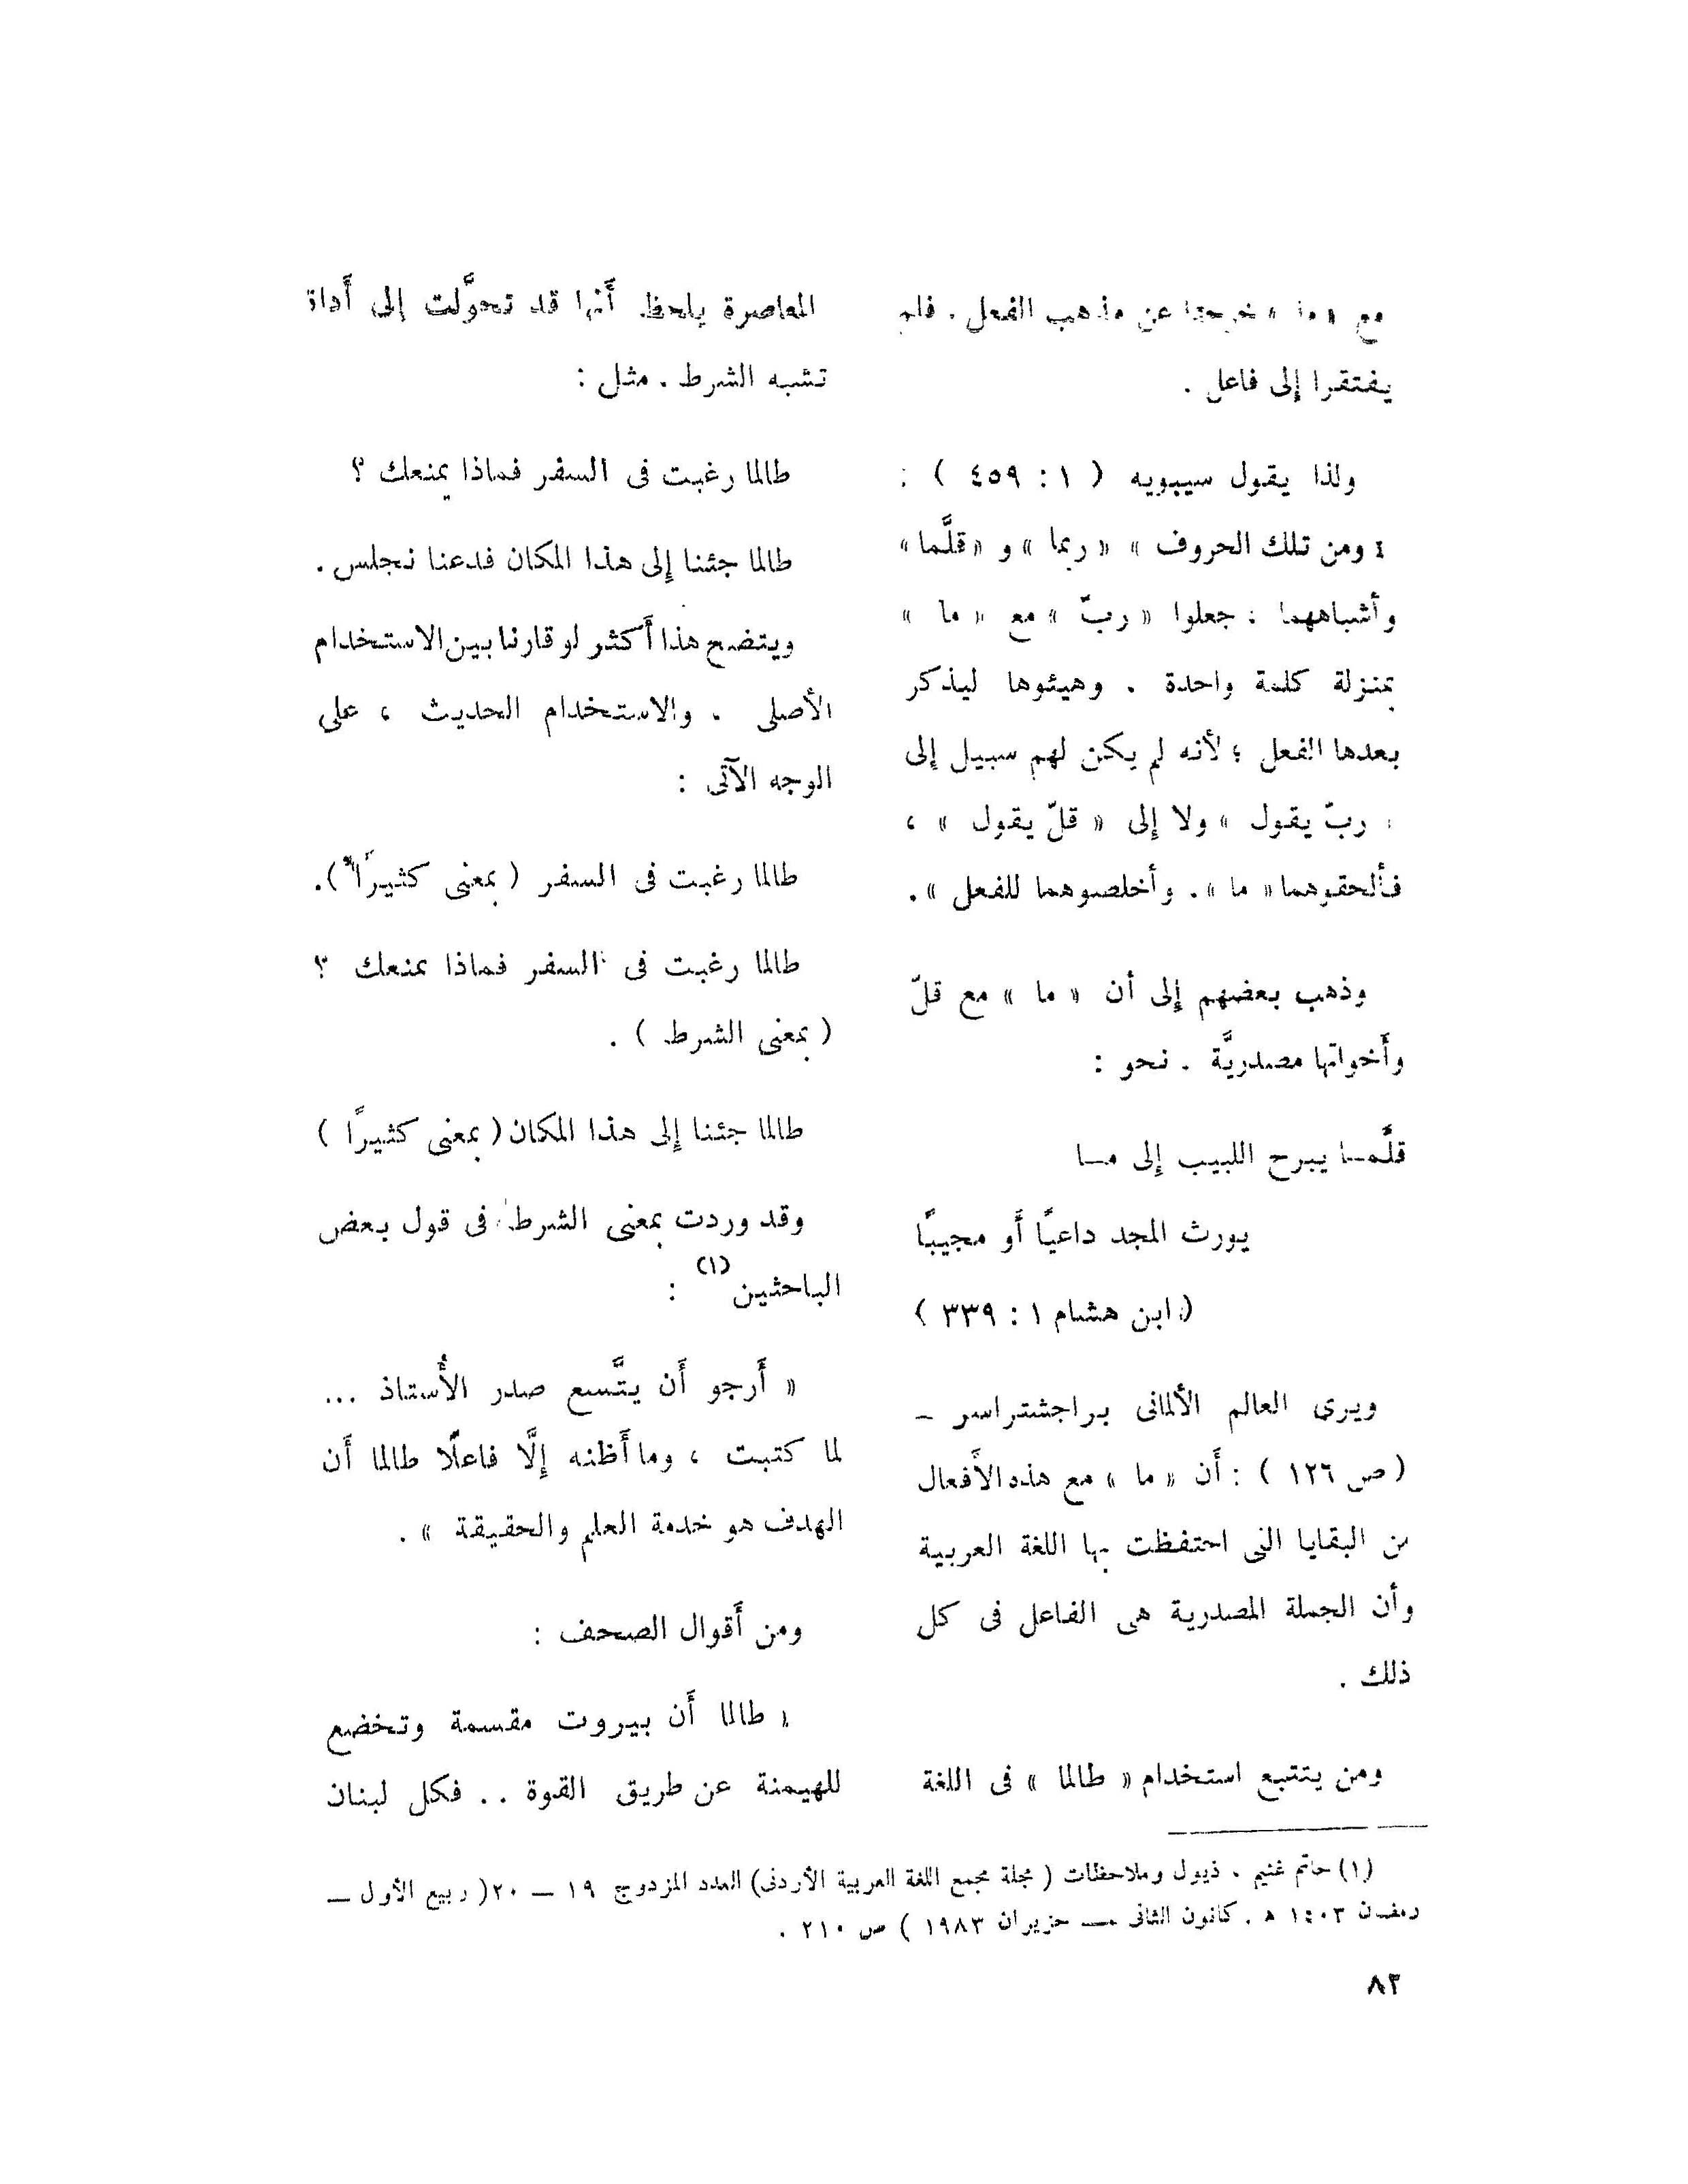 مع « ما » خرجتا عن مذهب الفعل . فلم
يفتقرا إلى فاعل .
ولذا يقول سيبويه ( ١ : ٤٥٩ ) :
« ومن تلك الحروف » « ربما » و « قلَّما »
وأشباههما : جعلوا « ربّ » مع « ما »
بمنزلة كلمة واحدة . وهيئوها ليذكر
بعدها الفعل ؛ لأنه لم يكن لهم سبيل إلى
« ربّ يقول » ولا إلى « قلّ يقول » ،
فألحقوهما « ما » . وأخلصوهما للفعل » .
وذهب بعضهم إلى أن « ما » مع قلّ
وأَخواتها مصدريَّة . نحو :
قلَّمــا يبرح اللبيب إلى مــا
يورث المجد داعيًا أَو مجيبًا
( ابن هشام ١ : ٣٣٩ )
ويرى العالم الألمانى براجشتراسر –
( ص ١٢٦ ) : أَن « ما » مع هذه الأَفعال
من البقايا التى احتفظت بها اللغة العربية
وأن الجملة المصدرية هى الفاعل فى كل
ذلك .
ومن يتتبع استخدام « طالما » فى اللغة
المعاصرة يلحظ أَنها قد تحوَّلت إلى أَداة
تشبه الشرط . مثل :
طالما رغبت فى السفر فماذا يمنعك ؟
طالما جئنا إلى هذا المكان فدعنا نجلس .
ويتضح هذا أَكثر لو قارنا بين الاستخدام
الأصلى . والاستخدام الحديث ، على
الوجه الآتى :
طالما رغبت فى السفر ( بمعنى كثيرًا ) .
طالما رغبت فى السفر فماذا يمنعك ؟
( بمعنى الشرط ) .
طالما جئنا إلى هذا المكان ( بمعنى كثيرًا )
وقد وردت بمعنى الشرط فى قول بعض
الباحثين (١) :
« أَرجو أَن يتَّسع صدر الأُستاذ ...
لما كتبت ، وما أَظنه إلَّا فاعلًا طالما أَن
الهدف هو خدمة العلم والحقيقة » .
ومن أَقوال الصحف :
« طالما أَن بيروت مقسمة وتخضع
للهيمنة عن طريق القوة .. فكل لبنان
(١) حاتم غنيم . ذيول وملاحظات ( مجلة مجمع اللغة العربية الأردنى ) العدد المزدوج ١٩ – ٢٠ ( ربيع الأول –
رمضان ١٤٠٣ ه . كانون الثانى – حزيران ١٩٨٣ ) ص ٢١٠ .
٨٣